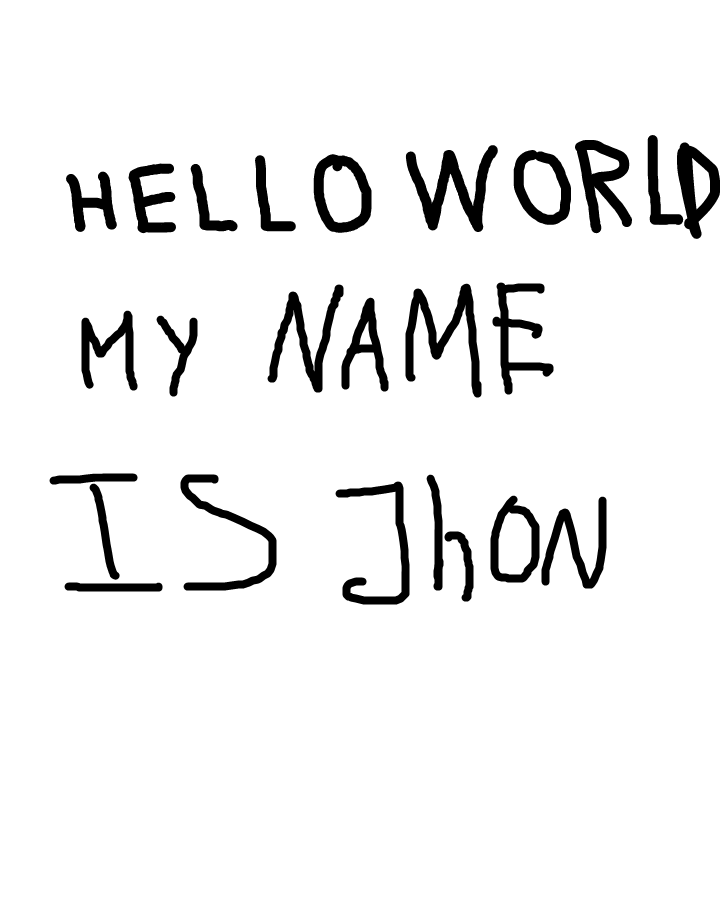 HELLO WORLD
MY NAME
IS JhON